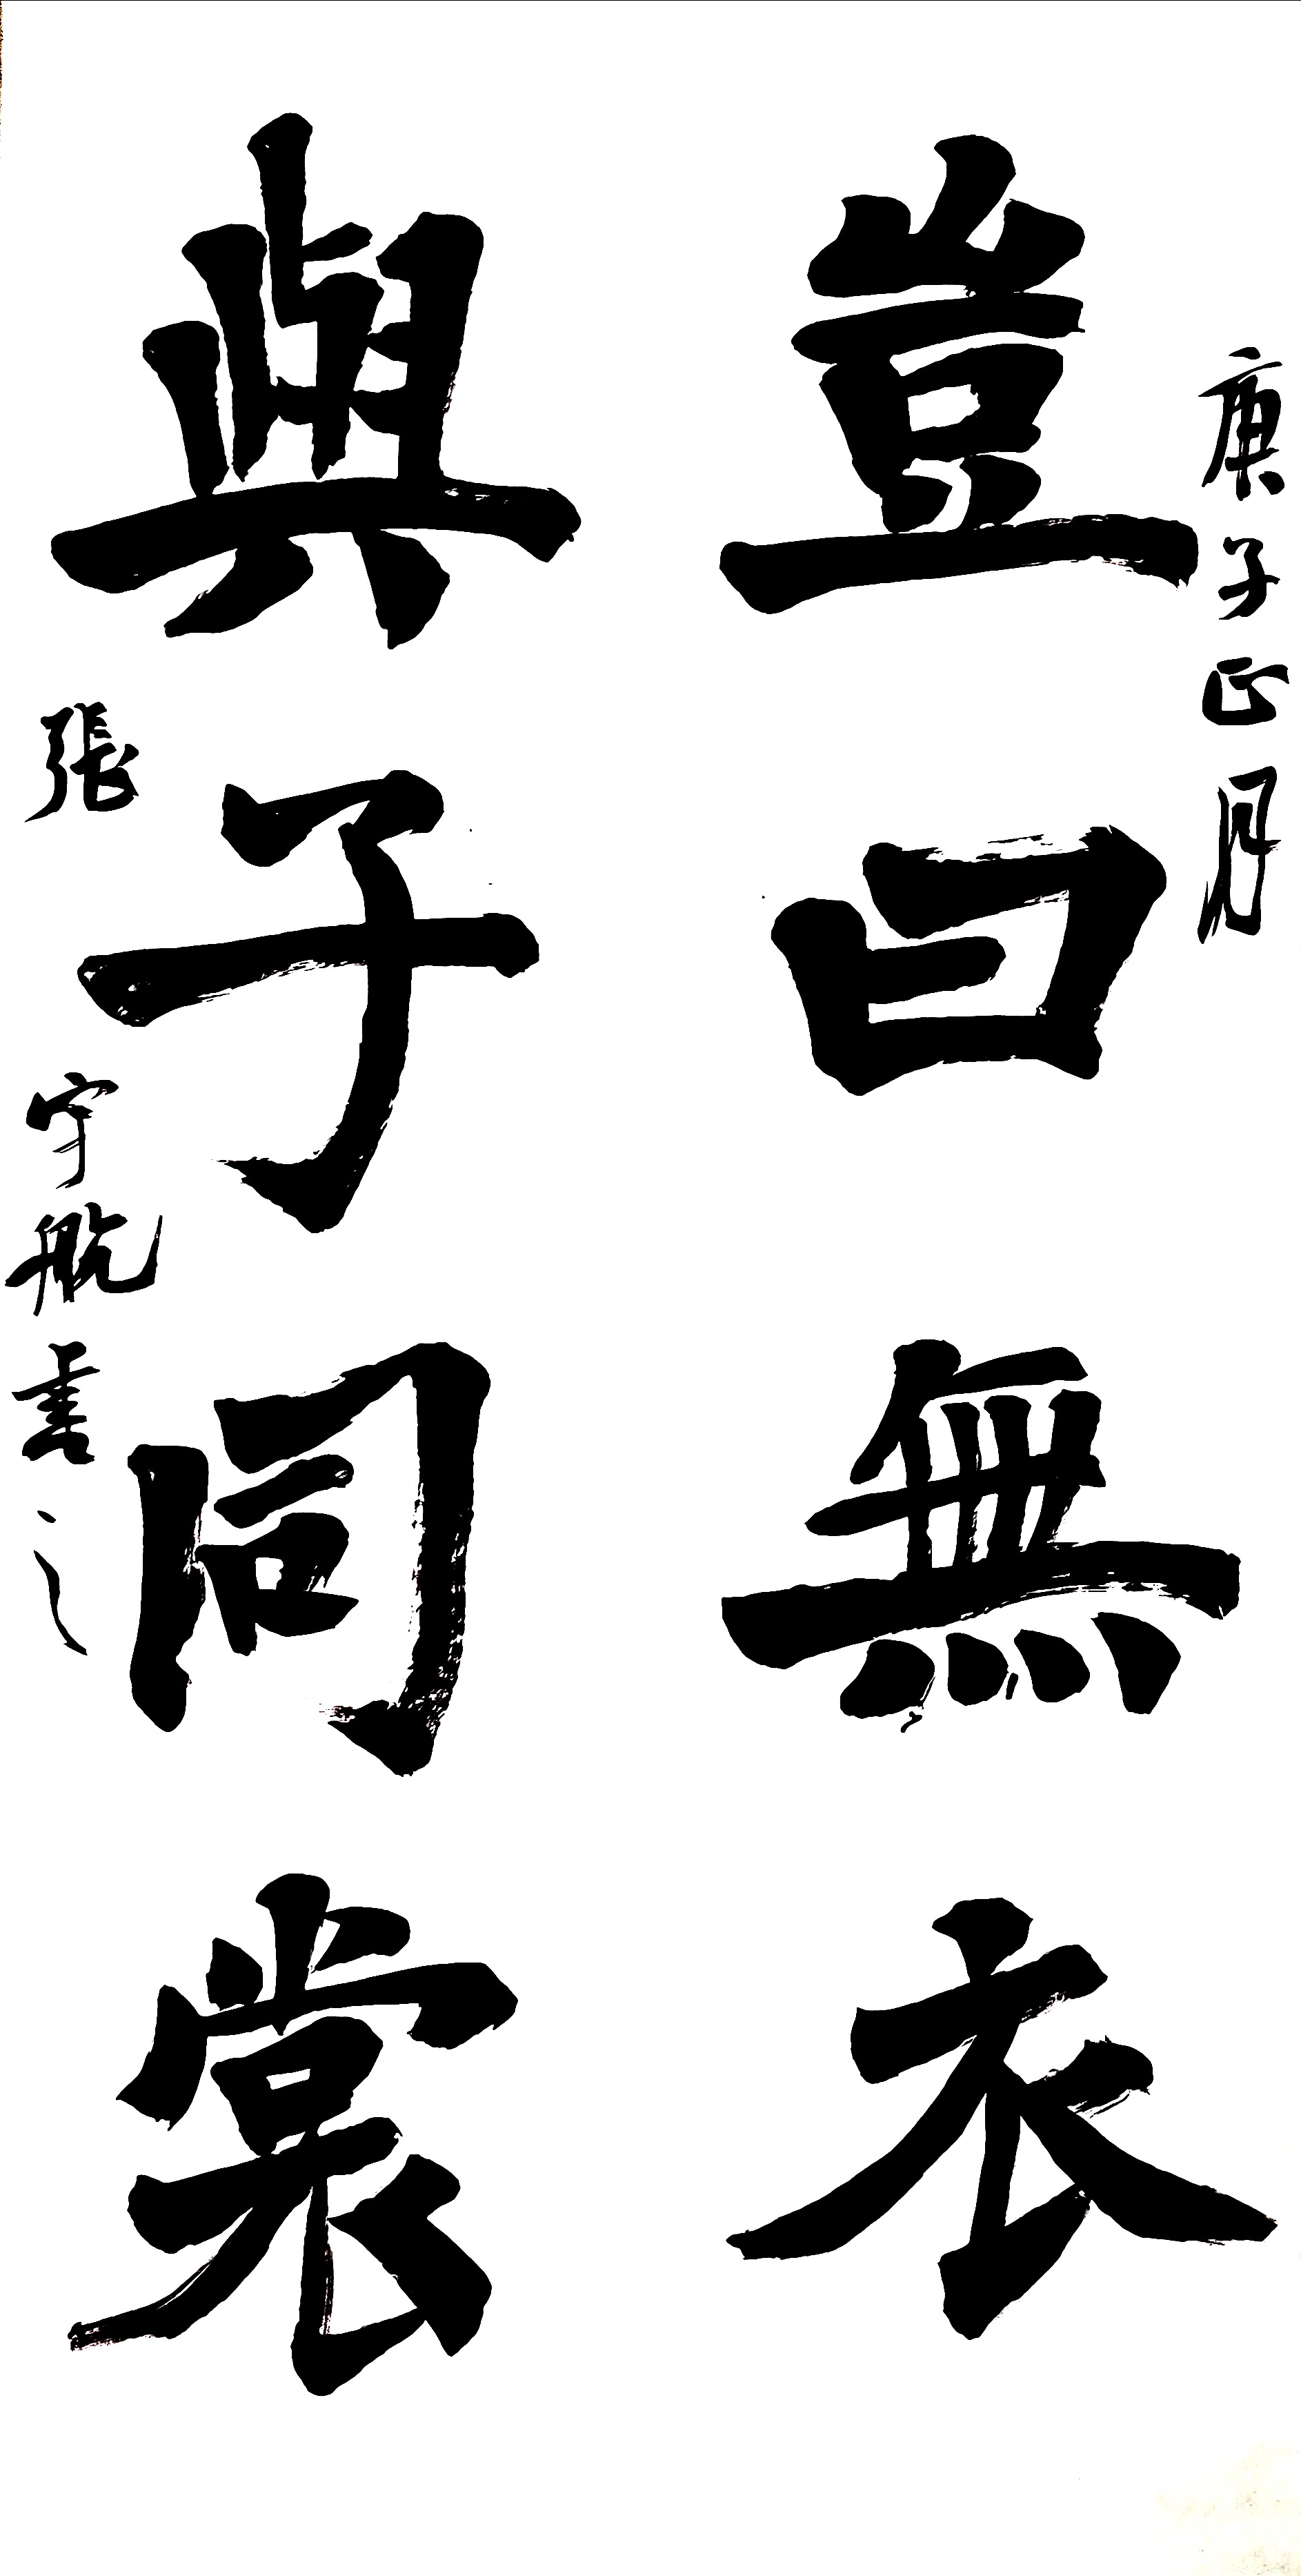 庚子正月
豈曰無衣
與子同裳
張宇航書之